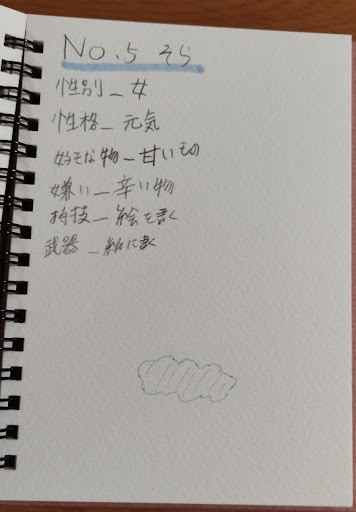 No.5 そら
性別_女
性格_元気
好きな物_甘いもの
嫌い_辛い物
特技_絵を書く
武器_紙に書く